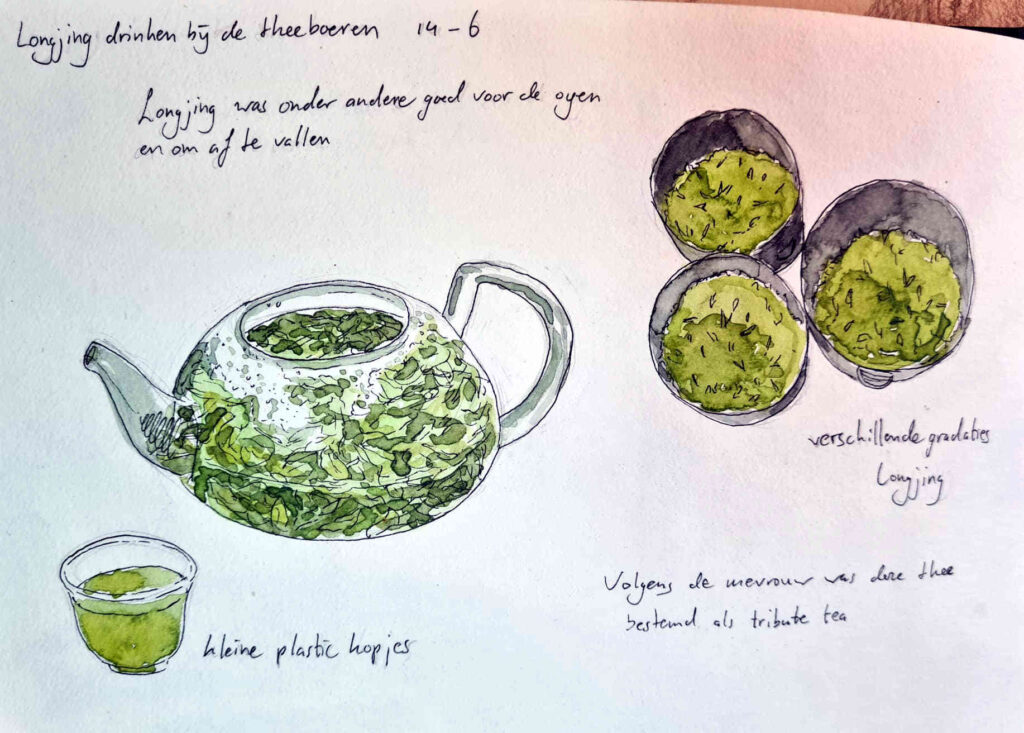 Longjing drinken bij de theeboeren 14-6
Longjing was onder andere goed voor de ogen
en om af te vallen
verschillende gradaties
Longjing
Volgens de mevrouw was deze thee
bestemd als tribute tea
kleine plastic kopjes